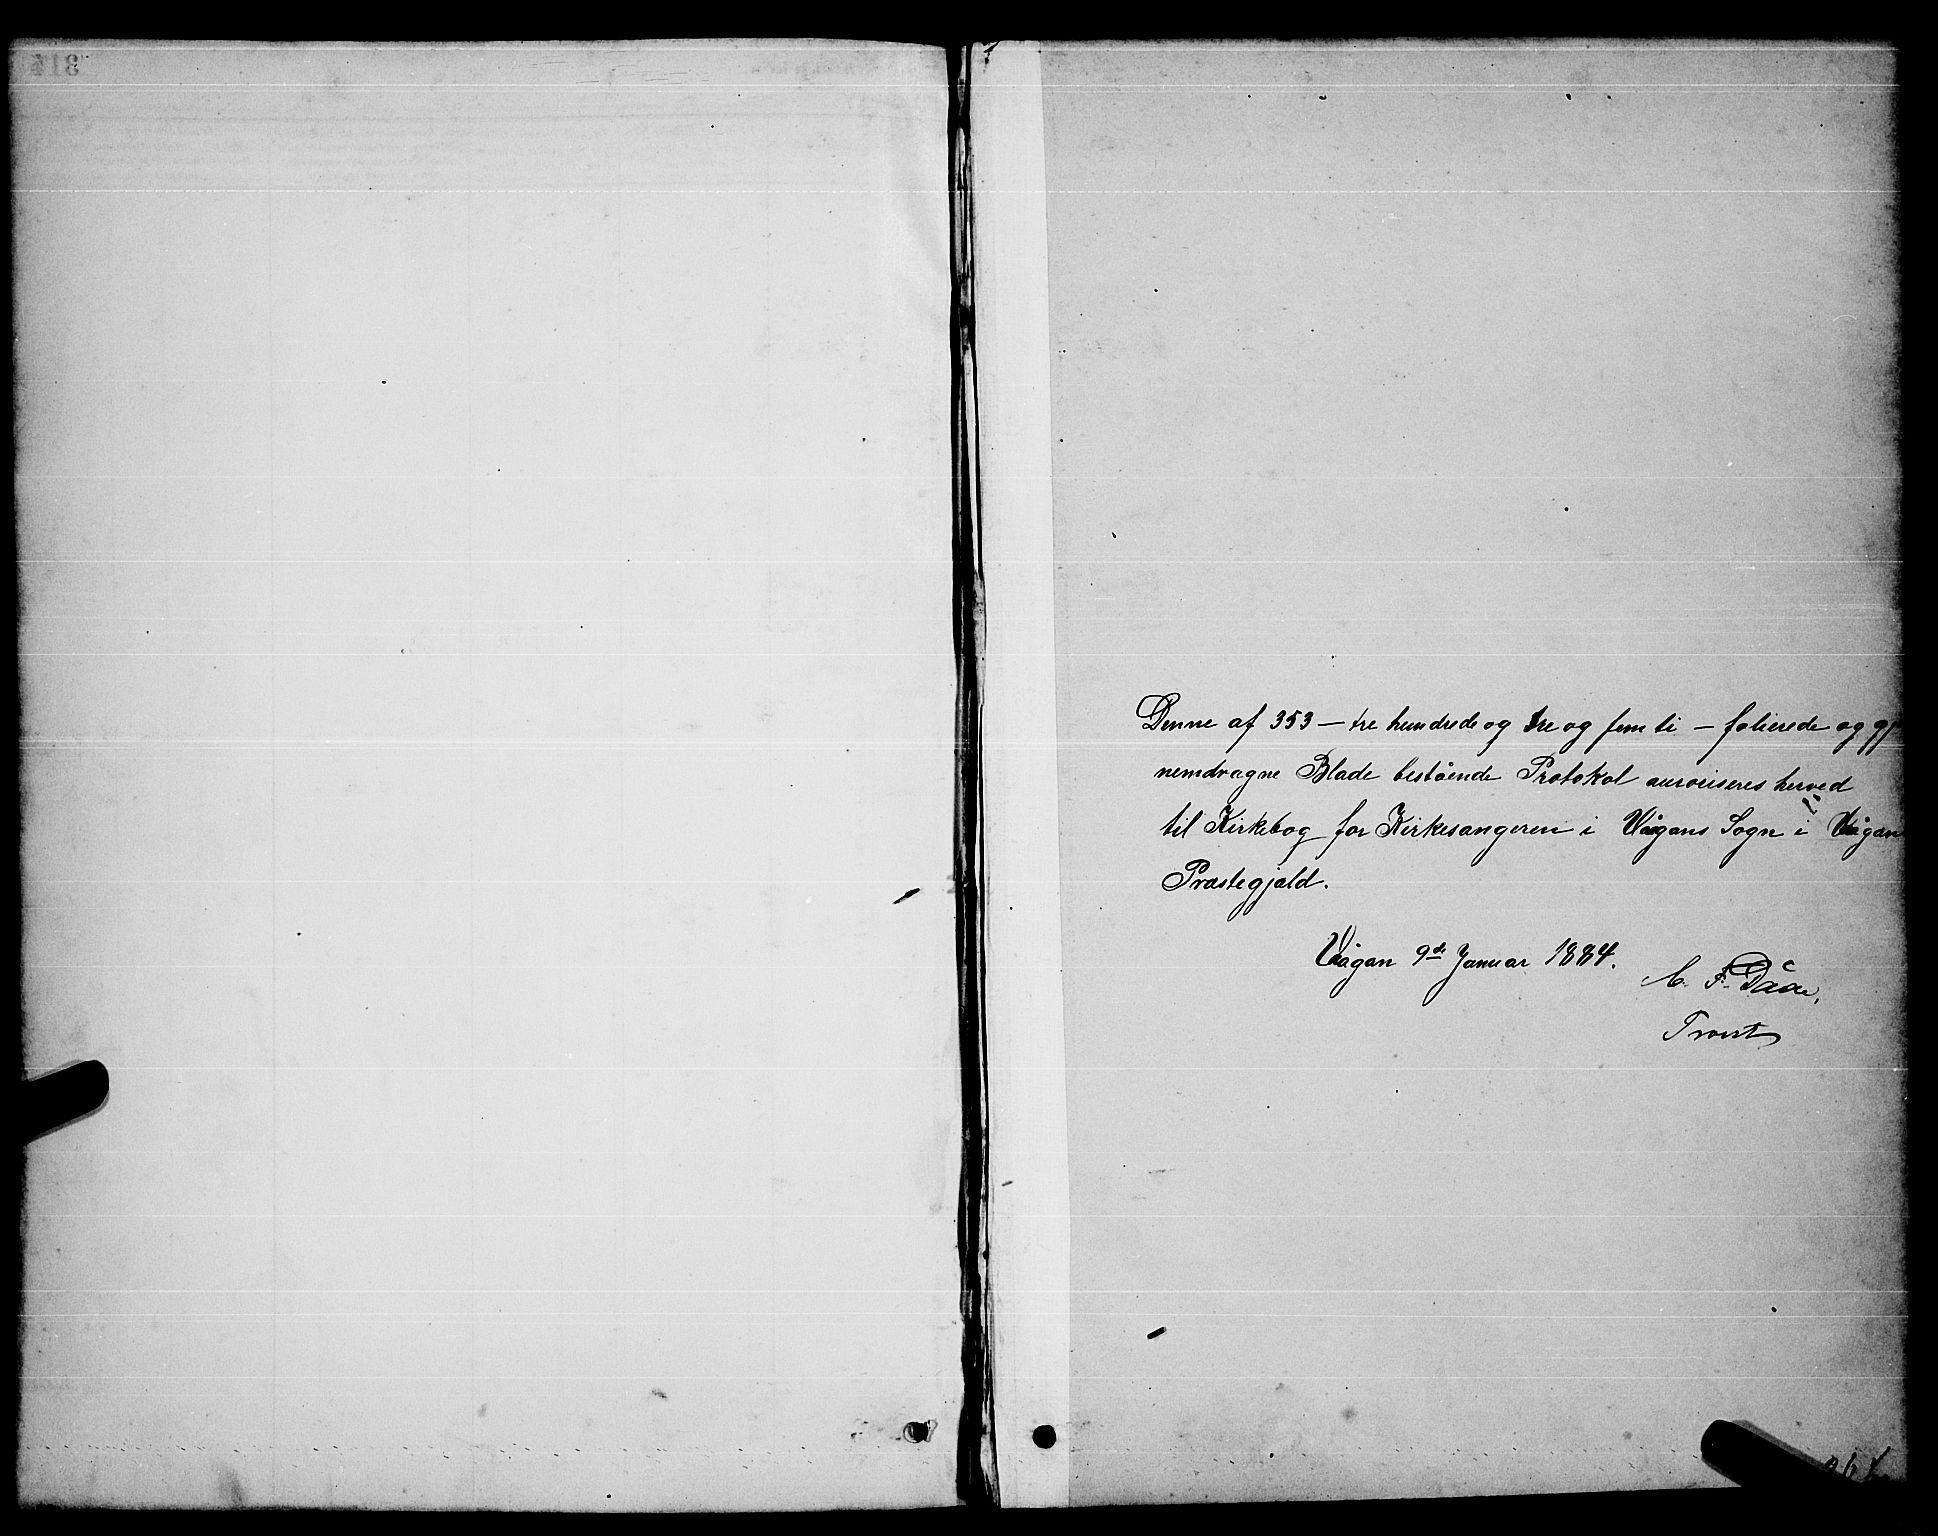 Denne af 353 — tre hundrede og tre og femti — folierede og gj
nemdragne Blade bestående Protokol auroriseres herved
til Kirkebog for Kirkesangeren i Vågans Sogn i Vågan
Præstegjæld.
Vågan 9de Januar 1884.
C. F. Dåae,
Provst